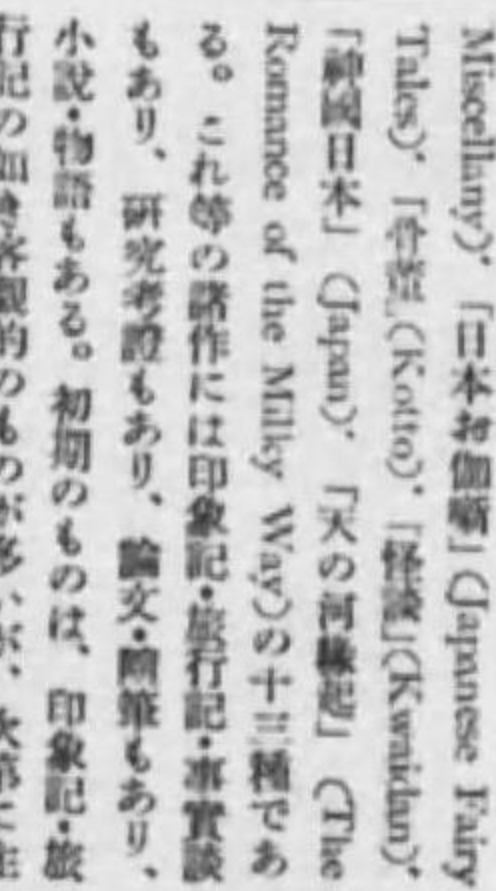 Miscellany)、「日本お伽噺」(Japanese Fairy
Tales)、「骨董」(Kotto)、「怪談」(Kwaidan)、
「神國日本」(Japan)、「天の河縁起」(The
Romance of the Milky Way)の十三種であ
る。これ等の諸作には印象記・旅行記・事實談
もあり、研究考證もあり、論文・隨筆もあり、
小説・物語もある。初期のものは、印象記・旅
行記の如き客觀的のものが多いが、次第に主